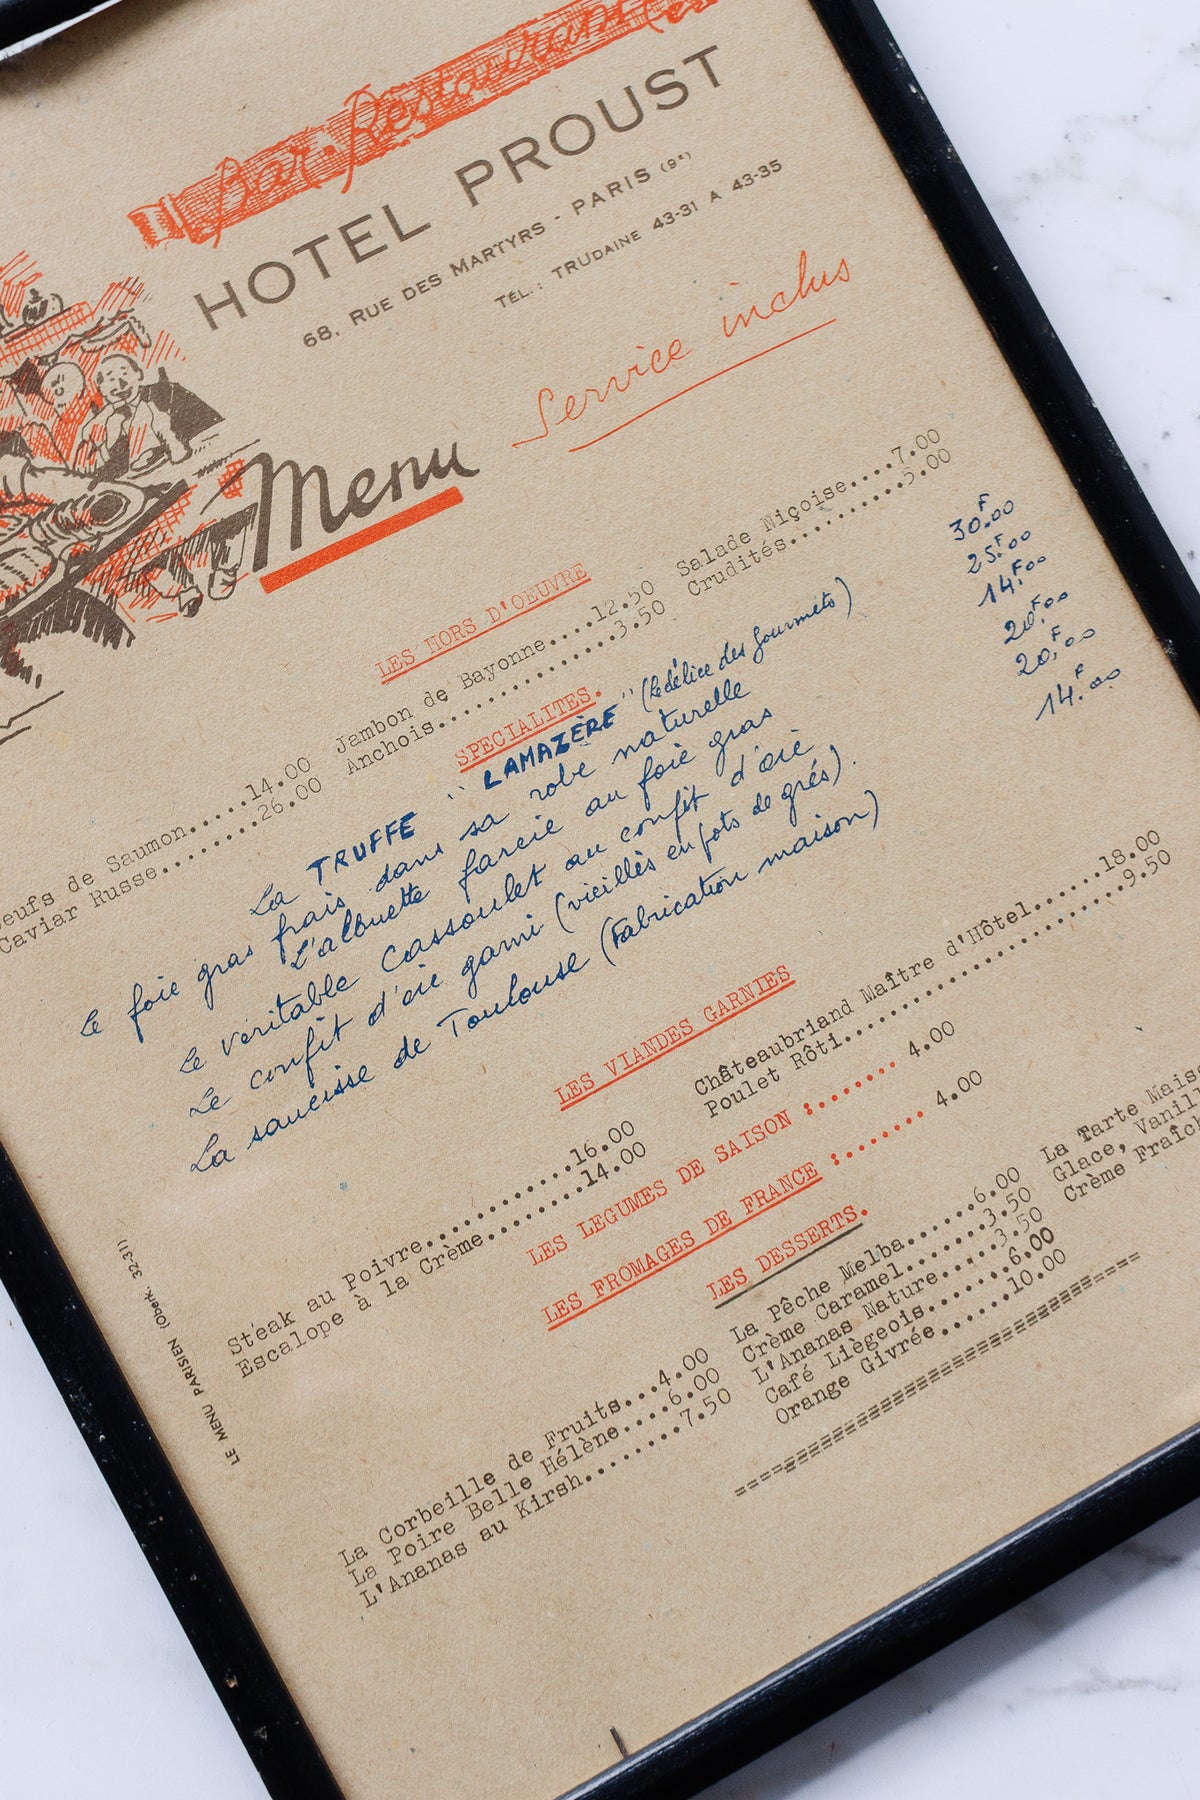 Bar-Restaurant
HOTEL PROUST
68, RUE DES MARTYRS - PARIS (9e)
TÉL.: TRUDAINE 43-31 A 43-35
Service inclus
Menu
LES HORS D'OEUVRE
de Saumon.....14.00 Jambon de Bayonne....12.50 Salade Niçoise....7.00
Caviar Russe........26.00 Anchois.............3.50 Crudités.........5.00
SPECIALITES.
La TRUFFE "LAMAZÈRE" (le délice des gourmets) 30F.00
Le foie gras frais dans sa robe naturelle 25F.00
L'alouette farcie au foie gras 14F.00
Le véritable cassoulet au confit d'oie 20F.00
Le confit d'oie garni (vieillès en pots de grés). 20F.00
La saucisse de Toulouse (Fabrication maison) 14F.00
LES VIANDES GARNIES
Steak au Poivre............16.00 Châteaubriand Maître d'Hôtel......18.00
Escalope à la Crème........14.00 Poulet Rôti.......................9.50
LES LEGUMES DE SAISON :........ 4.00
LES FROMAGES DE FRANCE :........ 4.00
LES DESSERTS.
La Corbeille de Fruits...4.00 La Pêche Melba......6.00 La Tarte
La Poire Belle Hélène....6.00 Crème Caramel.......3.50 Glace,
L'Ananas au Kirsh........7.50 L'Ananas Nature.....3.50 Crème
Café Liègeois.......6.00
Orange Givrée......10.00
LE MENU PARISIEN (Oberk. 32-31)